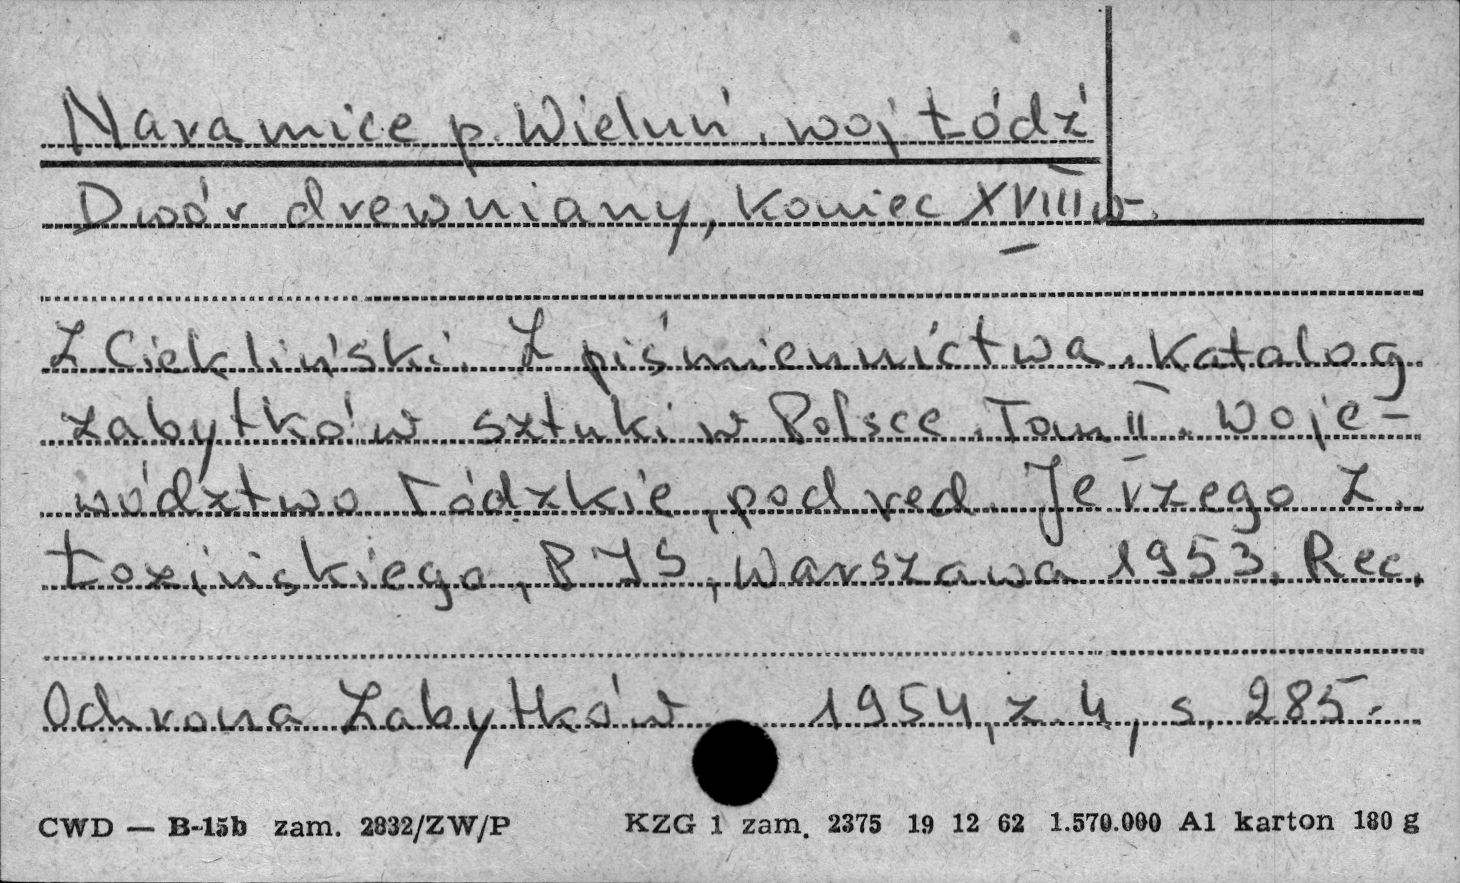 Naramice p. Wieluń, woj Łódź
Dwór drewniany, koniec XVIII w.
Z Ciekliński. Z piśmiennictwa. Katalog
zabytków sztuki w Polsce. Tom II. Woje-
wództwo łódzkie, pod red. Jerzego Z.
Łozińskiego, PIS, Warszawa 1953. Rec.
Ochrona Zabytków 1954, z. 4, s. 285.
CWD — B-15b zam. 2832/ZW/P KZG 1 zam. 2375 19 12 62 1.570.000 A1 karton 180 g